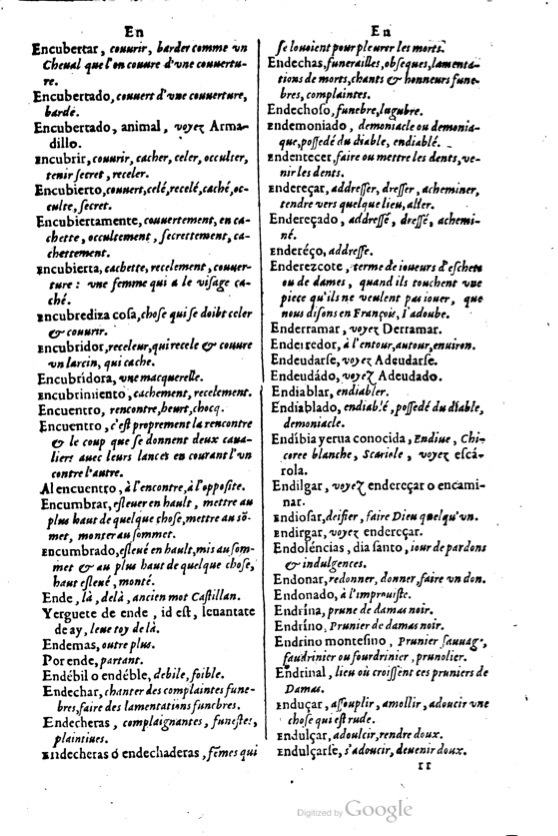 En
Encubertar, couurir, barder comme vn
Cheual que l'on couure d'vne couuertu-
re.
Encubertado, couuert d'vne couuerture,
bardé.
Encubertado, animal, voyez Arma-
dillo.
Encubrir, couurir, cacher, celer, occulter,
tenir secret, receler.
Encubierto, couuert, celé, recelé, caché, oc-
culte, secret.
Encubiertamente, couuertement, en ca-
chette, occultement, secrettement, ca-
chettement.
Encubierta, cachette, recelement, couuer-
ture : vne femme qui a le visage ca-
ché.
Encubrediza cosa, chose qui se doibt celer
& couurir.
Encubridor, receleur, qui recele & couure
vn larcin, qui cache.
Encubridora, vne macquerelle.
Encubrimiento, cachement, recelement.
Encuentro, rencontre, heurt, chocq.
Encuentro, c'est proprement la rencontre
& le coup que se donnent deux caua-
liers auec leurs lances en courant l'vn
contre l'autre.
Al encuentro, à l'encontre, à l'opposite.
Encumbrar, esleuer en hault, mettre au
plus haut de quelque chose, mettre au sõ-
met, monter au sommet.
Encumbrado, esleué en hault, mis au som-
met & au plus haut de quelque chose,
haut esleué, monté.
Ende, là, delà, ancien mot Castillan.
Yerguete de ende, id est, leuantate
de ay, leue toy de là.
Endemas, outre plus.
Por ende, partant.
Endébil o endéble, debile, foible.
Endechar, chanter des complaintes fune-
bres, faire des lamentations funebres.
Endecheras, complaignantes, funestes,
plaintiues.
Endecheras ó endechaderas, fẽmes qui
En
se louoient pour pleurer les morts.
Endechas, funerailles, obseques, lamenta-
tions de morts, chants & honneurs fune-
bres, complaintes.
Endechoso, funebre, lugubre.
Endemoniado, demoniacle ou demonia-
que, possedé du diable, endiablé.
Endentecer, faire ou mettre les dents, ve-
nir les dents.
Endereçar, addresser, dresser, acheminer,
tendre vers quelque lieu, aller.
Endereçado, addressé, dressé, achemi-
né.
Enderéço, addresse.
Enderezcote, terme de ioueurs d'eschets
ou de dames, quand ils touchent vne
piece qu'ils ne veulent pas iouer, que
nous disons en François, I'adoube.
Enderramar, voyez Derramar.
Enderredor, à l'entour, autour, enuiron.
Endeudarse, voyez Adeudarse.
Endeudádo, voyez Adeudado.
Endiablar, endiabler.
Endiablado, endiablé, possedé du diable,
demoniacle.
Endíbia yerua conocida, Endiue, Chi-
coree blanche, Scariole, voyez escá-
rola.
Endilgar, voyez endereçar o encami-
nar.
Endiosar, deifier, faire Dieu quelqu'vn.
Endirgar, voyez endereçar.
Endoléncias, dia santo, iour de pardons
& indulgences.
Endonar, redonner, donner, faire vn don.
Endonado, à l'improuiste.
Endrína, prune de damas noir.
Endríno, Prunier de damas noir.
Endrino montesino, Prunier sauuage,
faudrinier ou fourdrinier, prunolier.
Endrinal, lieu où croissent ces pruniers de
Damas.
Enduçar, assouplir, amollir, adoucir vne
chose qui est rude.
Endulçar, adoulcir, rendre doux.
Endulçarse, s'adoucir, deuenir doux.
II
Digitized by Google